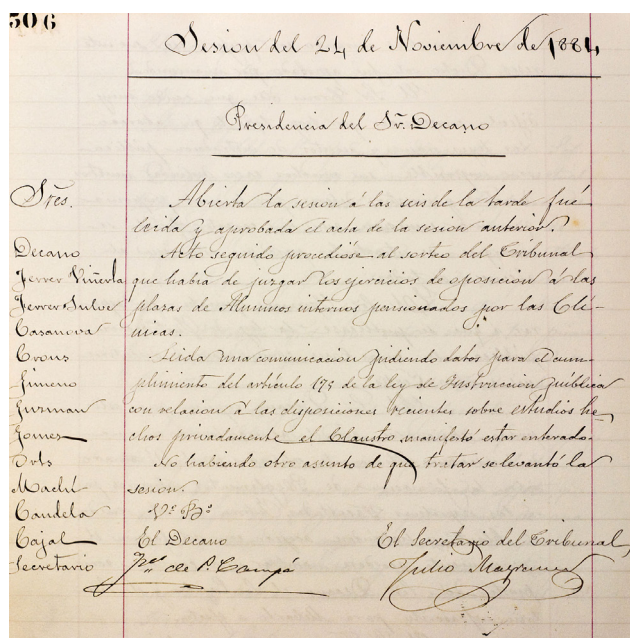 506
Sesion del 24 de Noviembre de 1884
Presidencia del Sr. Decano
Sres.
Decano
Ferrer Viñerta
Ferrer Julve
Casanova
Crous
Gimeno
Guzman
Gomez
Orts
Machí
Candela
Cajal
Secretario
Abierta la sesion á las seis de la tarde fué
leida y aprobada el acta de la sesion anterior.
Acto seguido procedióse al sorteo del Tribunal
que habia de juzgar los ejercicios de oposicion á las
plazas de Alumnos internos pensionados por las Clí-
nicas.
Leida una comunicacion pidiendo datos para el cum-
plimiento del artículo 175 de la ley de Instruccion pública
con relacion á las disposiciones recientes sobre estudios he-
chos privadamente el Claustro manifestó estar enterado.
No habiendo otro asunto de que tratar se levantó la
sesion.
Vº Bº
El Decano
de P. Campá
El Secretario del Tribunal,
Julio Magraner